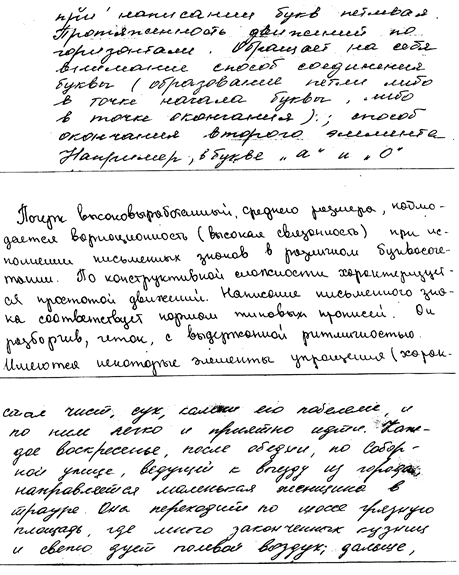 при написании букв петлевая.
Протяженность движений по
горизонтали. Обращает на себя
внимание способ соединения
буквы (образование петли либо
в точке начала буквы, либо
в точке окончания).; способ
окончания второго элемента
Например, в букве „а" и „О"
Почерк высоковыработанный, среднего размера, наблю-
дается вариационность (высокая связанность) при ис-
полнении письменных знаков в различном буквосоче-
тании. По конструктивной сложности характеризует-
ся простотой движений. Написание письменного зна-
ка соответствует нормам типовых прописей. Он
разборчив, четок, с выдержанной ритмичностью.
Имеются некоторые элементы упрощения (харак-
стал чист, сух, камни его побелели, и
по ним легко и приятно идти. Каж-
дое воскресенье, после обедни, по Собор-
ной улице, ведущей к выезду из города
направляется маленькая женщина в
трауре. Она переходит по шоссе грязную
площадь, где много законченных кузниц
и свежо дует полевой воздух; дальше,